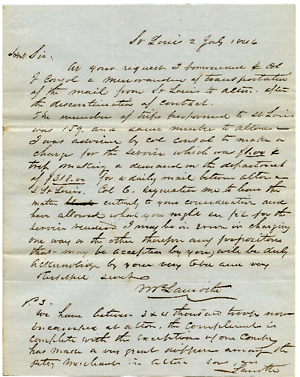 St Louis 2 July 1846
Sir.
At your request I forwarded to Col
a memorandum of transportation
of the mail from St Louis to Alton after
the discontinuation of contract.
The number of trips performed to St Louis
was 159. and same number to Alton
I was advised by Col to make a
charge for the service
trip making a demand on the department
of For a daily mail between Alton &
St Louis. Col C. requested me to leave the
matter entirely to your consideration and
have allowed what you might see fit for the
service I may be in error in charging
one way or the other therefore any proposition
that may be accepted by you will be duly
acknowledged by your very Obe and very
Respectful Servt
P.S.
We have between 3 & 4 thousand troops now
encamped at Alton, the compliment is
complete with the exception of one Company
has made a very great difference among the
in Alton